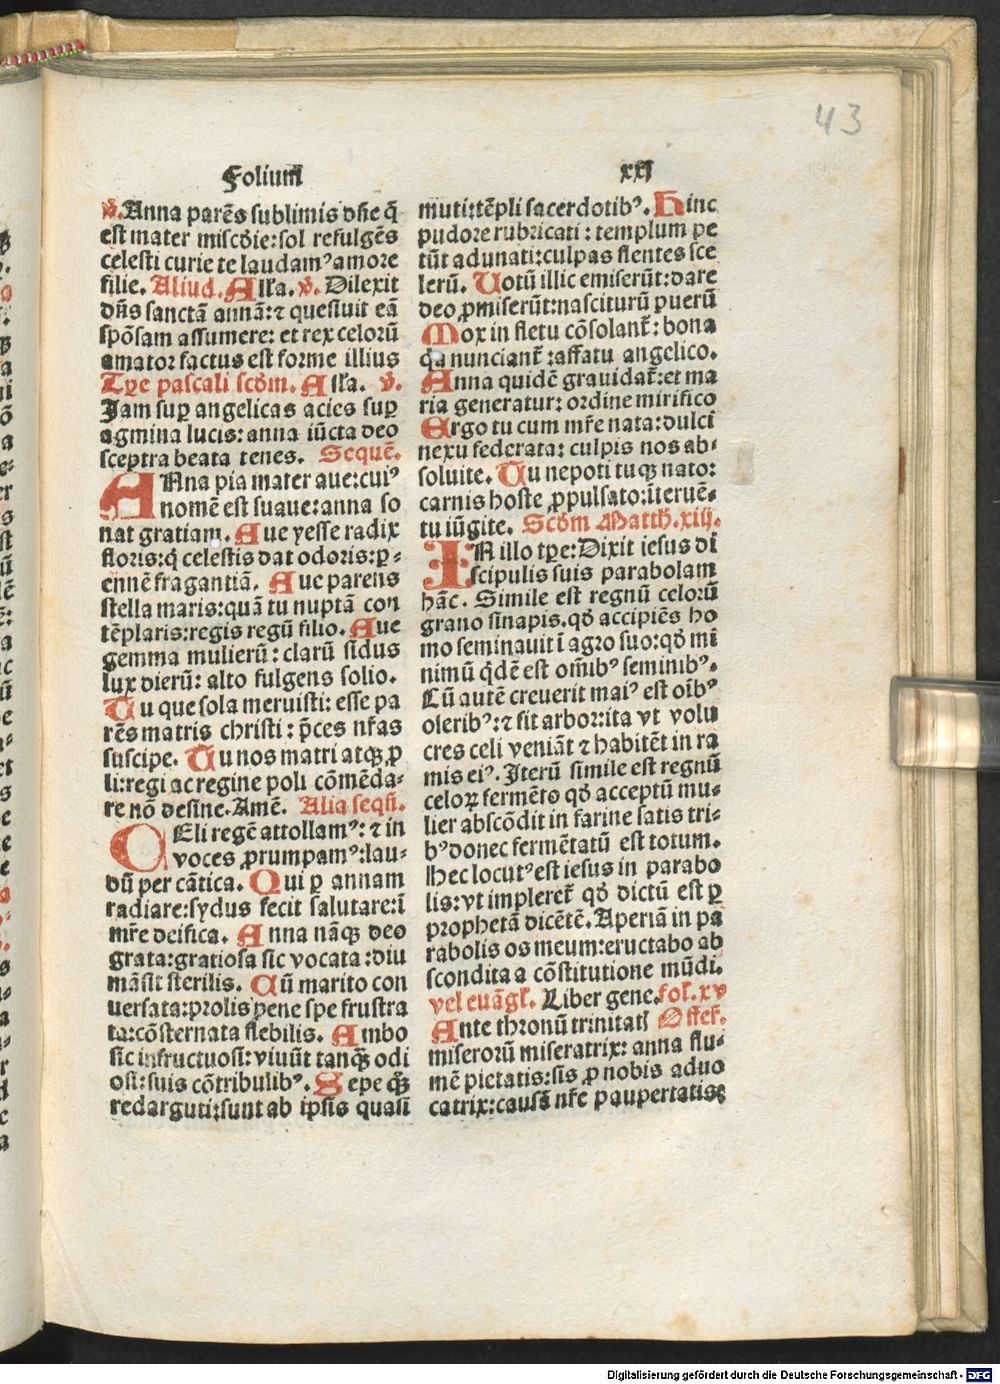 43
Folium xxj
v̓. Anna parēs sublimis dn̄e q̄
est mater misc̄die: sol refulgēs
celesti curie te laudamꝰ amore
filie. Aliud. Alła. v̓. Dilexit
dn̄s sanctā annā: ⁊ quesiuit eā
spōsam assumere: et rex celorū
amator factus est forme illius
Tp̄e pascali scdm̄. Alła. v̓.
Jam suꝑ angelicas acies suꝑ
agmina lucis: anna iūcta deo
sceptra beata tenes. Sequē.
ANna pia mater aue: cuiꝰ
nomē est suaue: anna so
nat gratiam. Aue yesse radix
floris: q̄ celestis dat odoris: ꝑ-
ennē fragantiā. Aue parens
stella maris: quā tu nuptā con
tēplaris: regis regū filio. Aue
gemma mulierū: clarū sidus
lux dierū: alto fulgens solio.
Tu que sola meruisti: esse pa
rēs matris christi: p̄ces nr̄as
suscipe. Tu nos matri atqꝫ ꝓ
li: regi ac regine poli cōmēda-
re nō desine. Amē. Alia seqn̄.
CEli regē attollamꝰ: ⁊ in
voces ꝓrumpamꝰ: lau-
dū per cātica. Qui ꝑ annam
radiare: sydus fecit salutare: ī
mr̄e deifica. Anna nāqꝫ deo
grata: gratiosa sic vocata: diu
māsit sterilis. Cū marito con
uersata: prolis pene spe frustra
ta: cōsternata flebilis. Ambo
sic infructuosi: viuūt tanqꝫ odi
osi: suis cōtribulibꝰ. Sepe qꝫ
redarguti: sunt ab ipsis quasi
muti: tēpli sacerdotibꝰ. Hinc
pudore rubricati: templum pe
tūt adunati: culpas flentes sce
lerū. Uotū illic emiserūt: dare
deo ꝓmiserūt: nasciturū puerū
Mox in fletu cōsolant᷑: bona
q̄a nunciant᷑: affatu angelico.
Anna quidē grauidat᷑: et ma
ria generatur: ordine mirifico
Ergo tu cum mr̄e nata: dulci
nexu federata: culpis nos ab-
soluite. Tu nepoti tuqꝫ nato:
carnis hoste ꝓpulsato: īteruē-
tu iūgite. Scdm̄ Matth. xiij.
IN illo tp̄e: Dixit iesus di
scipulis suis parabolam
hāc. Simile est regnū celorū
grano sinapis. qd̄ accipiēs ho
mo seminauit ī agro suo: qd̄ mi
nimū qd̄ē est om̄ibꝰ seminibꝰ.
Cū autē creuerit maiꝰ est oībꝰ
oleribꝰ: ⁊ fit arbor: ita vt volu
cres celi veniāt ⁊ habitēt in ra
mis eiꝰ. Iterū simile est regnū
celoꝝ fermēto qd̄ acceptū mu-
lier abscōdit in farine satis tri-
bꝰ donec fermētatū est totum.
Hec locutꝰ est iesus in parabo
lis: vt impleret᷑ qd̄ dictū est ꝑ
prophetā dicētē. Aperiā in pa
rabolis os meum: eructabo ab
scondita a cōstitutione mūdi.
vel euāgł. Liber gene. foł. xv
Ante thronū trinitatꝭ Offeř.
miserorū miseratrix: anna flu-
mē pietatis: sis ꝓ nobis aduo
catrix: causā nr̄e paupertatis⁊
Digitalisierung gefördert durch die Deutsche Forschungsgemeinschaft - DFG